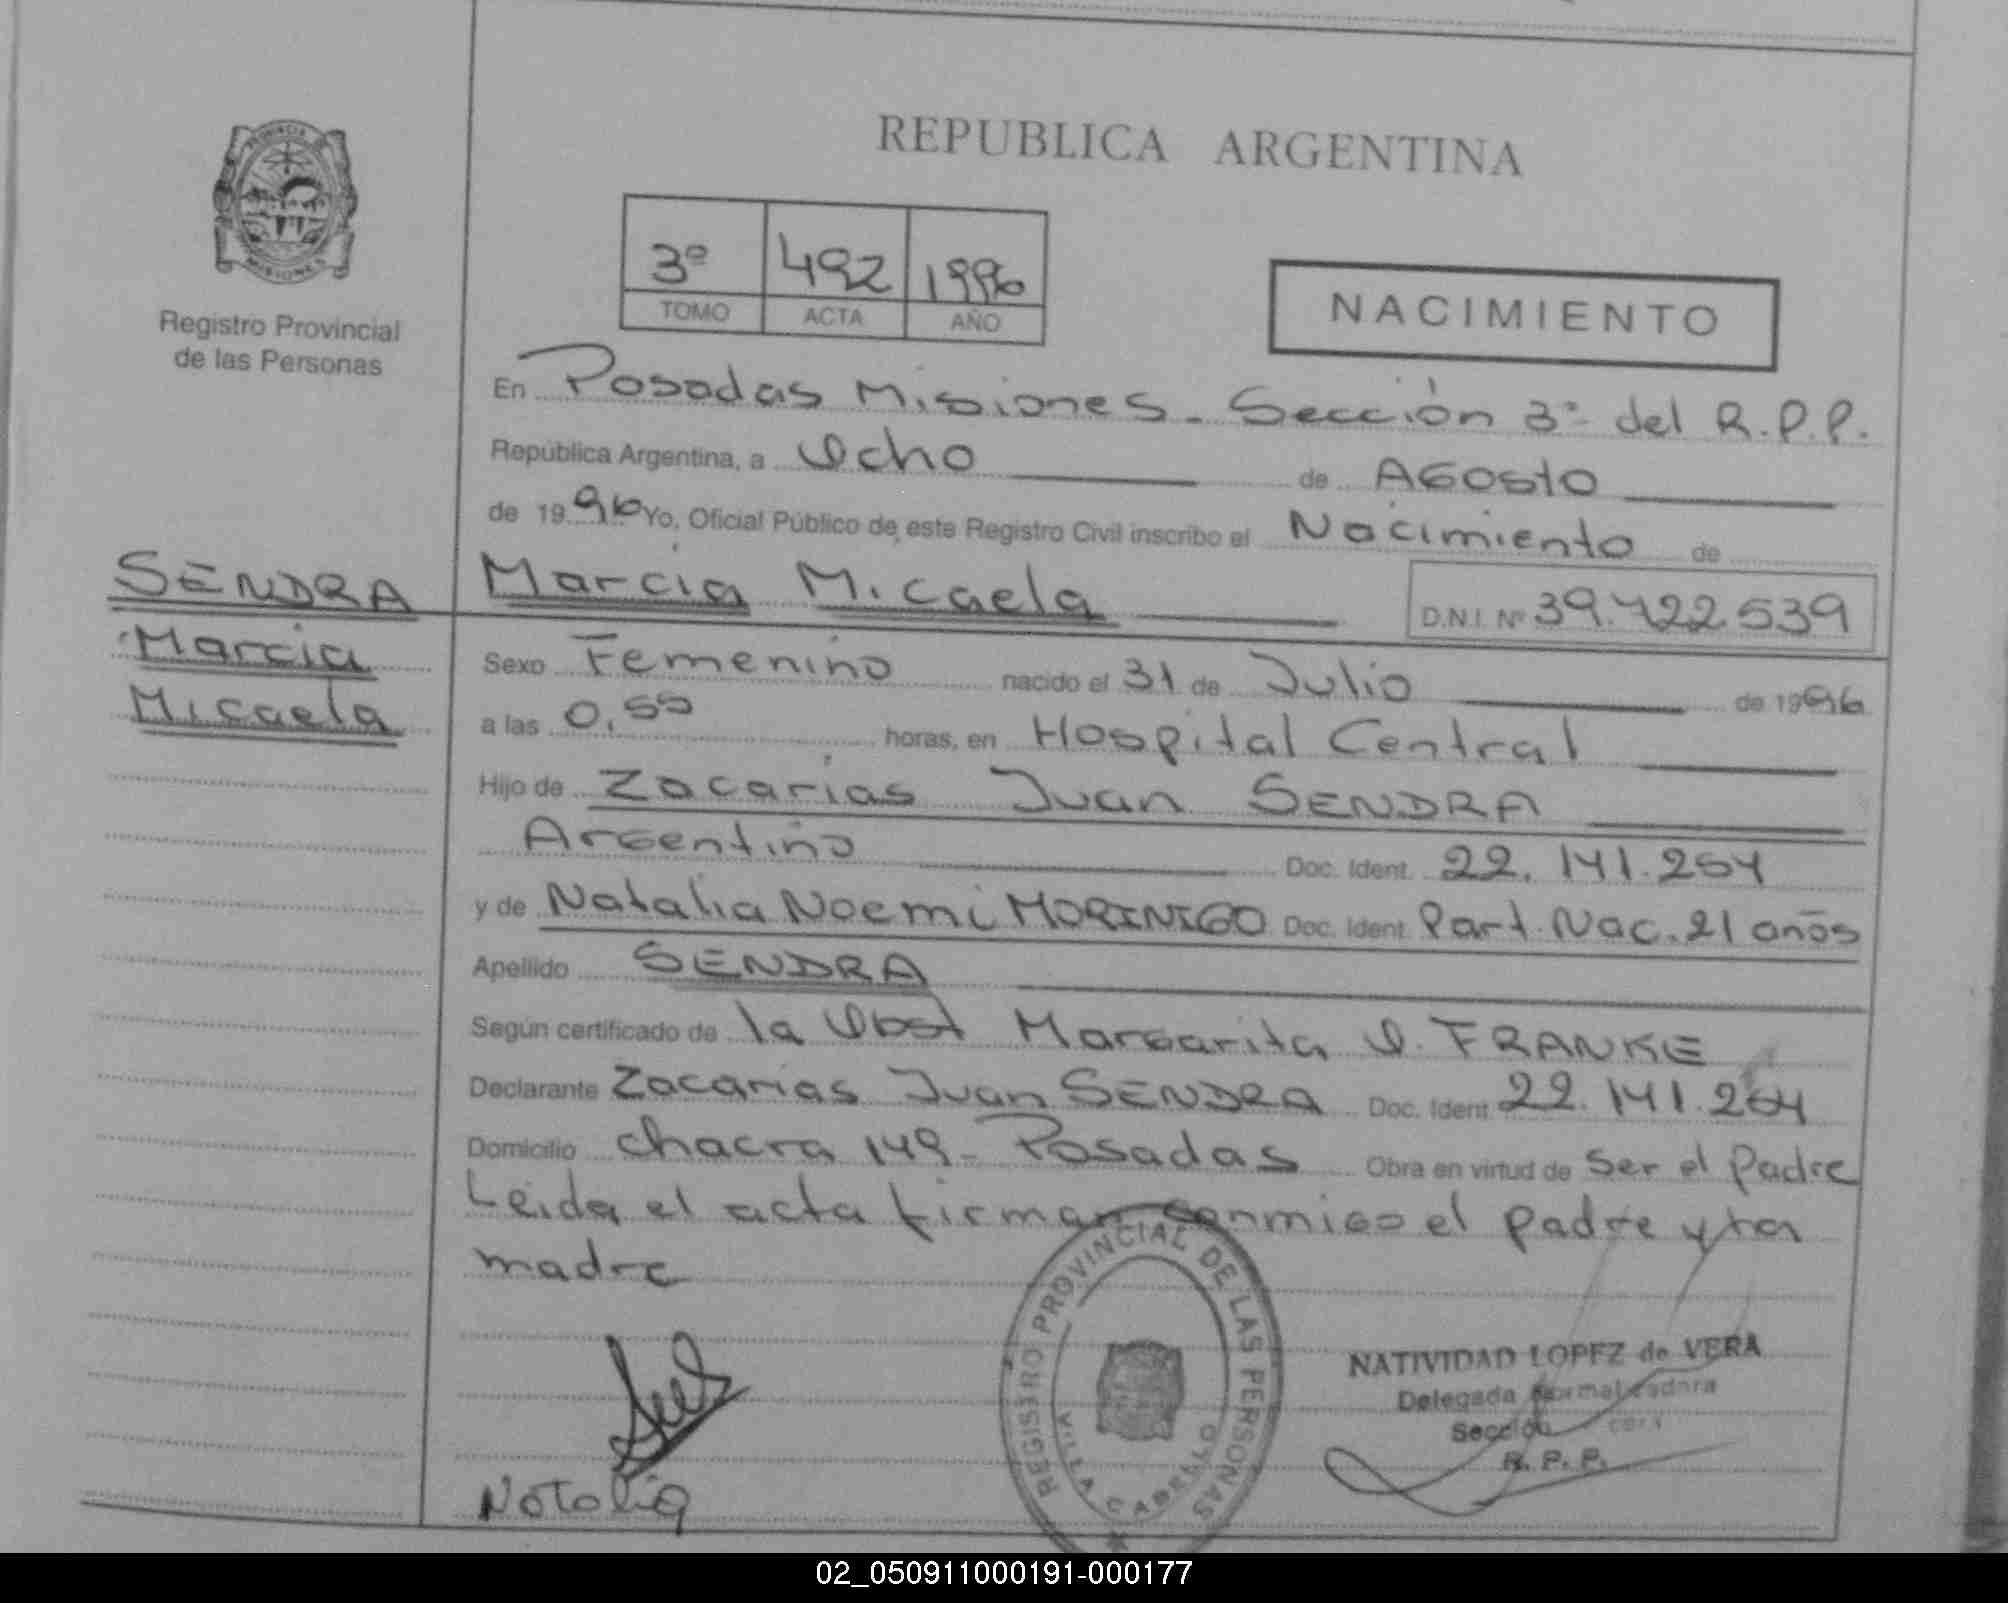 REPUBLICA ARGENTINA
PROVINCIA
MISIONES
Registro Provincial
de las Personas
3º 492 1996
TOMO ACTA AÑO
NACIMIENTO
En Posadas Misiones - Sección 3º del R.P.P.
República Argentina, a Ocho de Agosto
de 1996 Yo, Oficial Público de este Registro Civil inscribo el Nacimiento de
Marcia Micaela D.N.I. Nº 39.422.539
SENDRA
Marcia
Micaela
Sexo Femenino nacido el 31 de Julio de 1996
a las 0,55 horas, en Hospital Central
Hijo de Zacarias Juan SENDRA
Argentino Doc. Ident. 22.141.254
y de Natalia Noemi MORINIGO Doc. Ident. Part. Nac. 21 años
Apellido SENDRA
Según certificado de la Obst Margarita O. FRANKE
Declarante Zacarias Juan SENDRA Doc. Ident. 22.141.254
Domicilio chacra 149 - Posadas Obra en virtud de ser el padre
Leida el acta firman conmigo el padre y la
madre
REGISTRO PROVINCIAL DE LAS PERSONAS
VILLA CABELLO
NATIVIDAD LOPEZ de VERA
Delegada Normalizadora
Sección
R. P. P.
Natalia
02_050911000191-000177